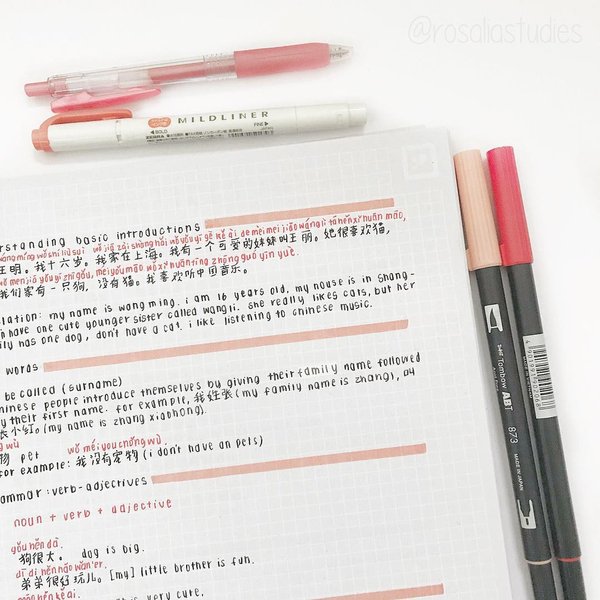 @rosaliastudies
MILDLINER
BOLD
FINE
erstanding basic introductions
wáng míng wǒ shí liù suì wǒ jiā zài shàng hǎi wǒ yǒu yí gè kě ài de mèi mei jiào wáng lì tā hěn xǐ huān māo,
王明。我十六岁。我家在上海。我有一个可爱的妹妹叫王丽。她很喜欢猫,
wǒ men jiā yǒu yī zhī gǒu, méi yǒu māo wǒ xǐ huān tīng zhōng guó yīn yuè.
我们家有一只狗, 没有猫。我喜欢听中国音乐。
lation: my name is wang ming. i am 16 years old, my house is in shang-
have one cute younger sister called wangli. she really likes cats, but her
ily has one dog, don't have a cat. i like listening to chinese music.
words
be called (surname)
hinese people introduce themselves by giving their family name followed
y their first name. for example, 我姓张 (my family name is zhang), 叫
张小红。(my name is zhang xiaohong).
wù
物 pet wǒ méi yǒu chǒng wù
for example: 我没有宠物 (i don't have an pets)
ammar: verb-adjectives
noun + verb + adjective
gǒu hěn dà.
狗很大。 dog is big.
dì di hěn hǎo wán'er.
弟弟很好玩儿。[my] little brother is fun.
hěn kě ài.
is very cute.
Tombow ABT
873
MADE IN JAPAN